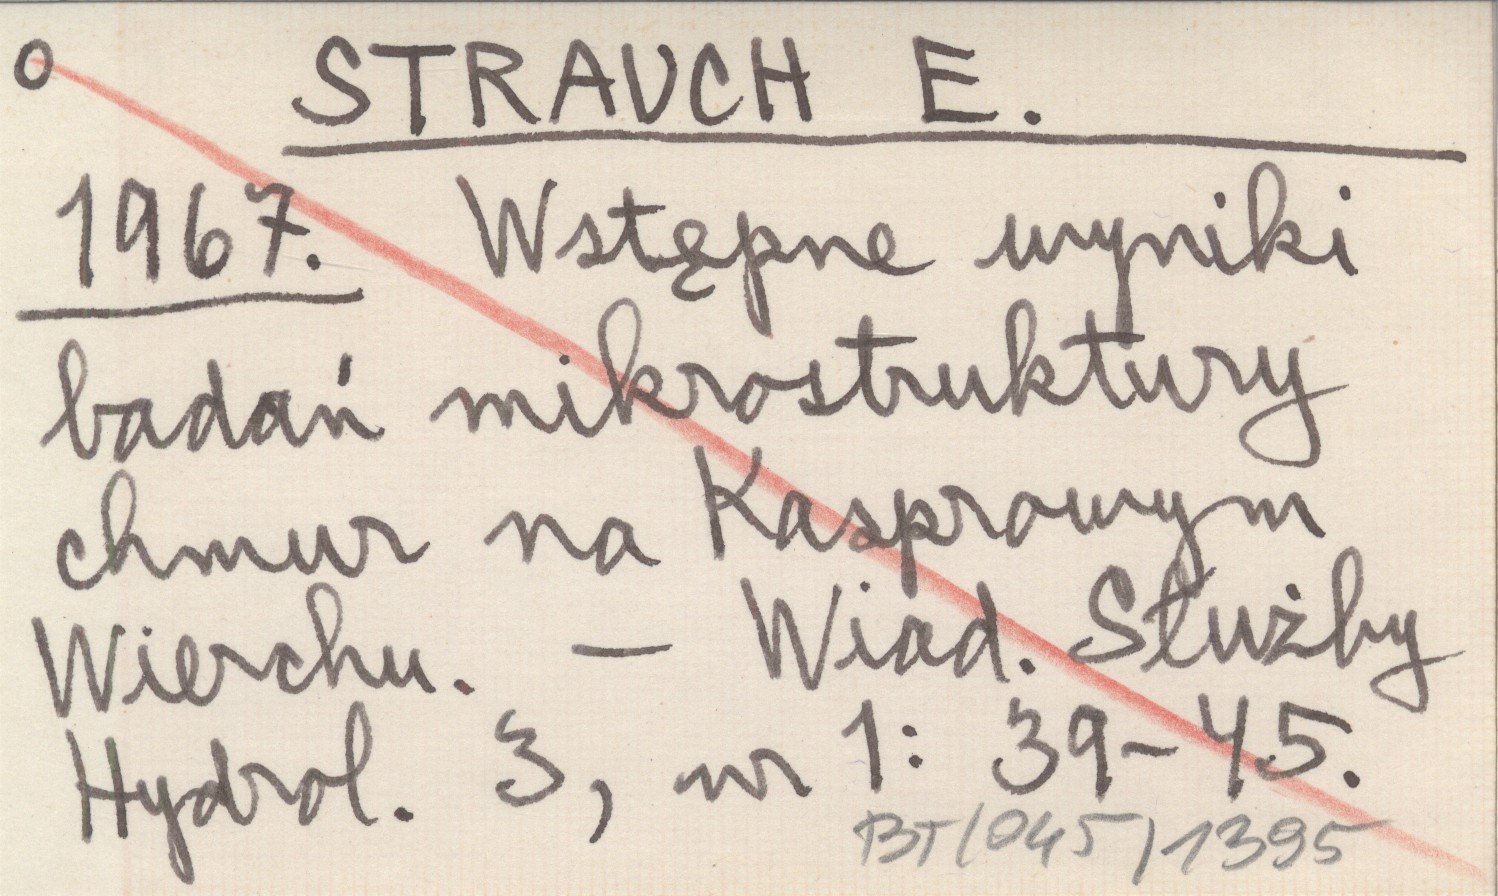 o STRAUCH E.
1967. Wstępne wyniki
badań mikrostruktury
chmur na Kasprowym
Wierchu. — Wiad. Służby
Hydrol. 3, nr 1: 39-45.
BT/045/1395